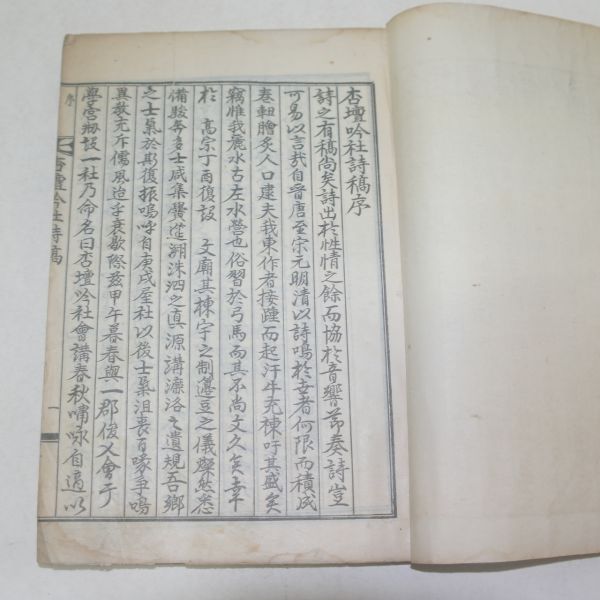 杏壇吟社詩稿序
詩之有稿尚矣詩出於性情之餘而協於音響節奏詩豈
可易以言哉自晉唐至宋元明清以詩鳴於世者何限而積成
卷軸膾炙人口逮夫我東作者接踵而起汗牛充棟吁其盛矣
竊惟我麗水古左水營也俗習於弓馬而其不尚文久矣幸
於 高宗丁酉復設 文廟其棟宇之制籩豆之儀燦然悉
備駿奔多士咸集黌進溯洙泗之真源講濂洛之遺規吾鄉
之士氣於斯復振嗚呼自庚戌屋社以後士氣沮喪百喙爭鳴
異教充斥儒風迨乎衰歇際玆甲午暮春與一郡俊乂會于
學宮刱設一社乃命名曰杏壇吟社會講春秋嘯咏自適以
序
杏壇吟社詩稿
一